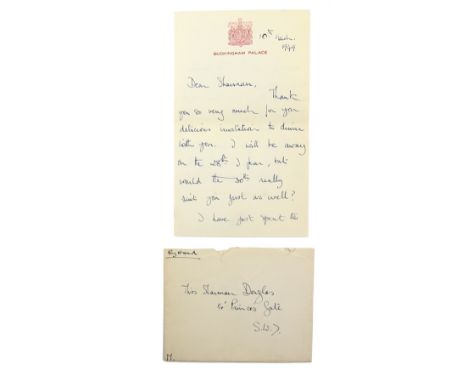 10th March.
1949
BUCKINGHAM PALACE
Dear Sharman,
Thank
you so very much for your
delicious invitation to dinner
with you. I will be away
on the 28th I fear, but
would the 30th really
suit you just as well?
I have just spent
By Hand
Miss Sharman Douglas
Princes Gate
S.W.7.
M.